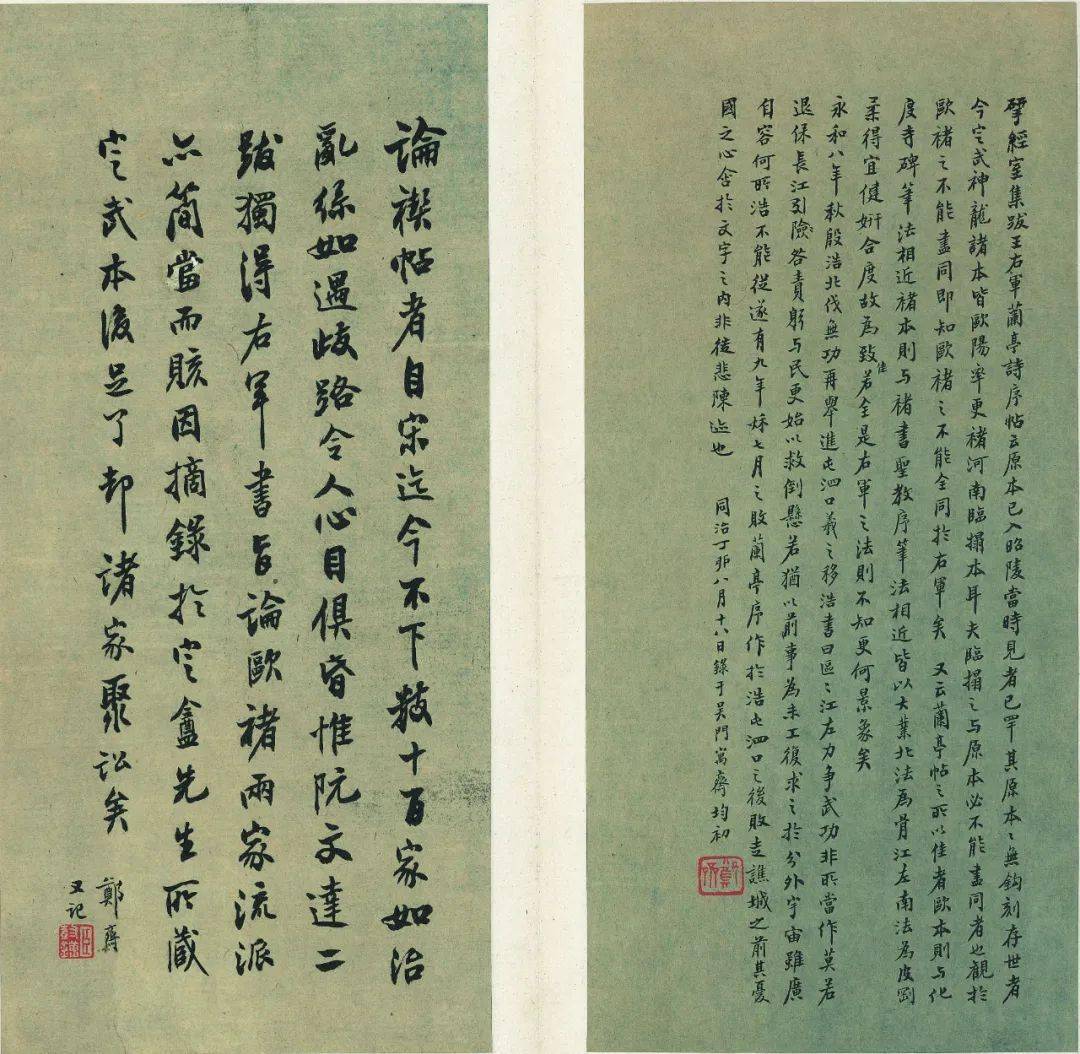 揅經室集跋王右軍蘭亭詩序帖云原本已入昭陵當時見者已罕其原本〻無鉤刻存世者
今定武神龍諸本皆歐陽率更褚河南臨搨本耳夫臨搨之与原本必不能盡同者也觀於
歐褚之不能盡同即知歐褚之不能全同於右軍矣 又云蘭亭帖之所以佳者歐本則与化
度寺碑筆法相近褚本則与褚書聖教序筆法相近皆以大業北法爲骨江左南法為皮剛
柔得宜健妍合度故為致佳若全是右軍之法則不知更何景象矣
永和八年秋殷浩北伐無功再舉進屯泗口羲之移浩書曰區〻江左力争武功非所當作莫若
退保長江引險咎責躬与民更始以救倒懸若猶以前事為未工復求之於分外宇宙雖廣
自容何所浩不能從遂有九年秌七月之敗蘭亭序作於浩屯泗口之後敗走譙城之前其憂
國之心含於文字之内非徒悲陳迹也 同治丁卯八月十八日錄于吴門寓齋均初
論禊帖者自宋迄今不下數十百家如治
亂絲如遇歧路令人心目俱昏惟阮文達二
跋獨得右軍書旨論歐褚兩家流派
亦簡當而賅因摘錄於定盦先生所藏
定武本後足了却諸家聚訟矣
鄭齋
又記